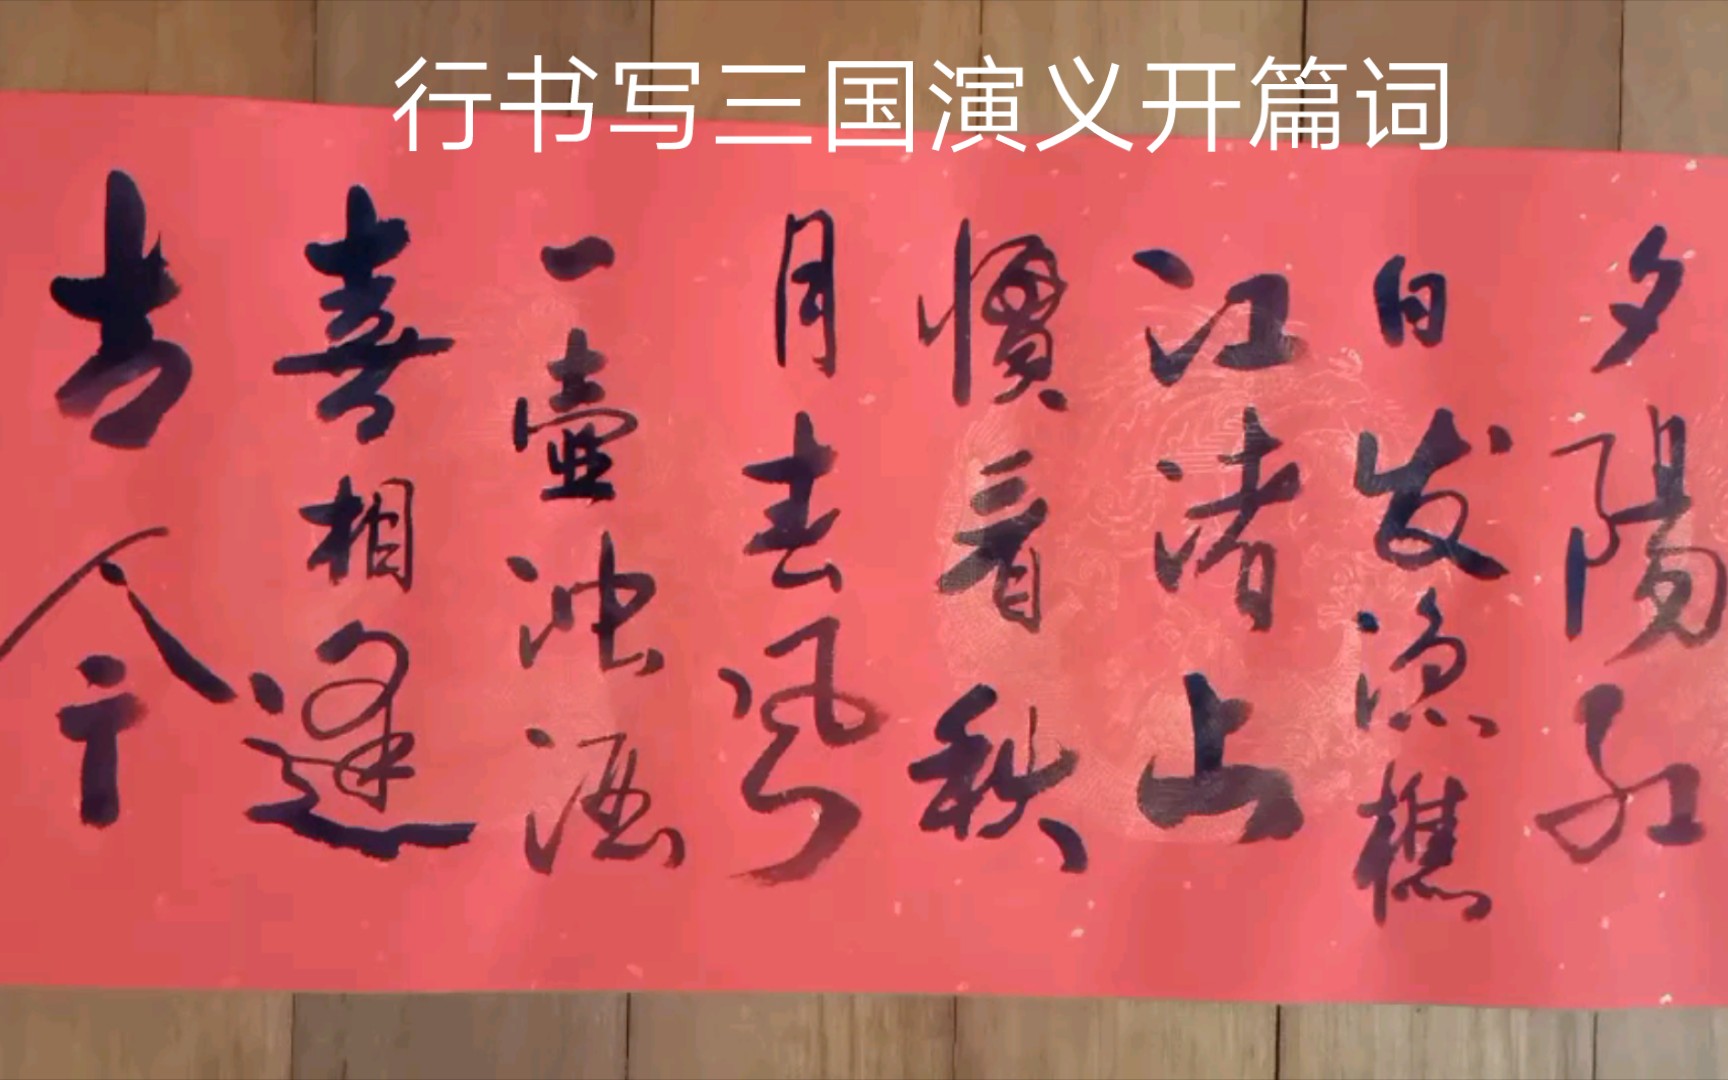 行书写三国演义开篇词
夕陽红
白发渔樵
江渚上
慣看秋
月春风
一壺浊酒
喜相逢
古今